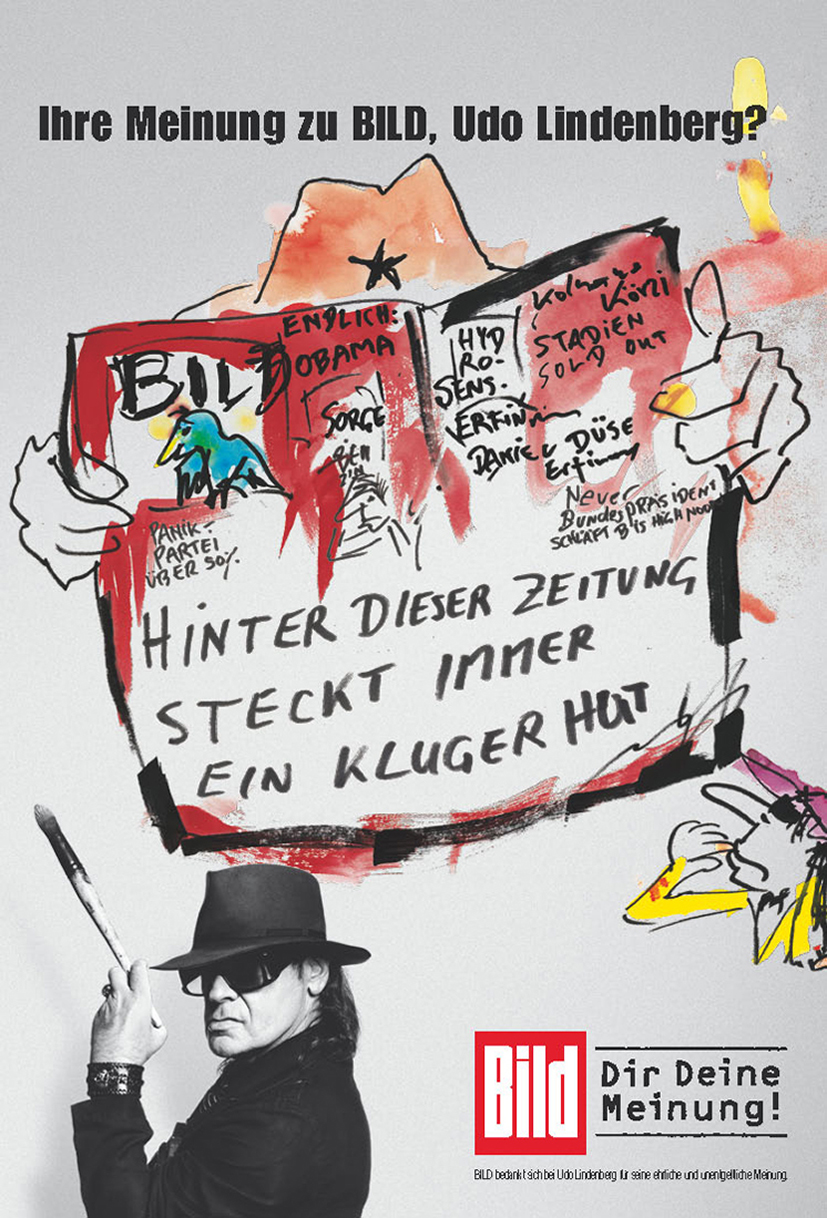 Ihre Meinung zu BILD, Udo Lindenberg?
BILD
ENDLICH:
OBAMA
SORGE
HYD
RO-
SENS.
ERFIN
DANIEL DÜSE
Erfinung
KÖNI
STADIEN
SOLD OUT
Neuer
BUNDESPRÄSIDENT
SCHLÄFT BIS HIGH NOON
PANIK-
PARTEI
ÜBER 50%
HINTER DIESER ZEITUNG
STECKT IMMER
EIN KLUGER HUT
Bild
Dir Deine
Meinung!
BILD bedankt sich bei Udo Lindenberg für seine ehrliche und unentgeltliche Meinung.